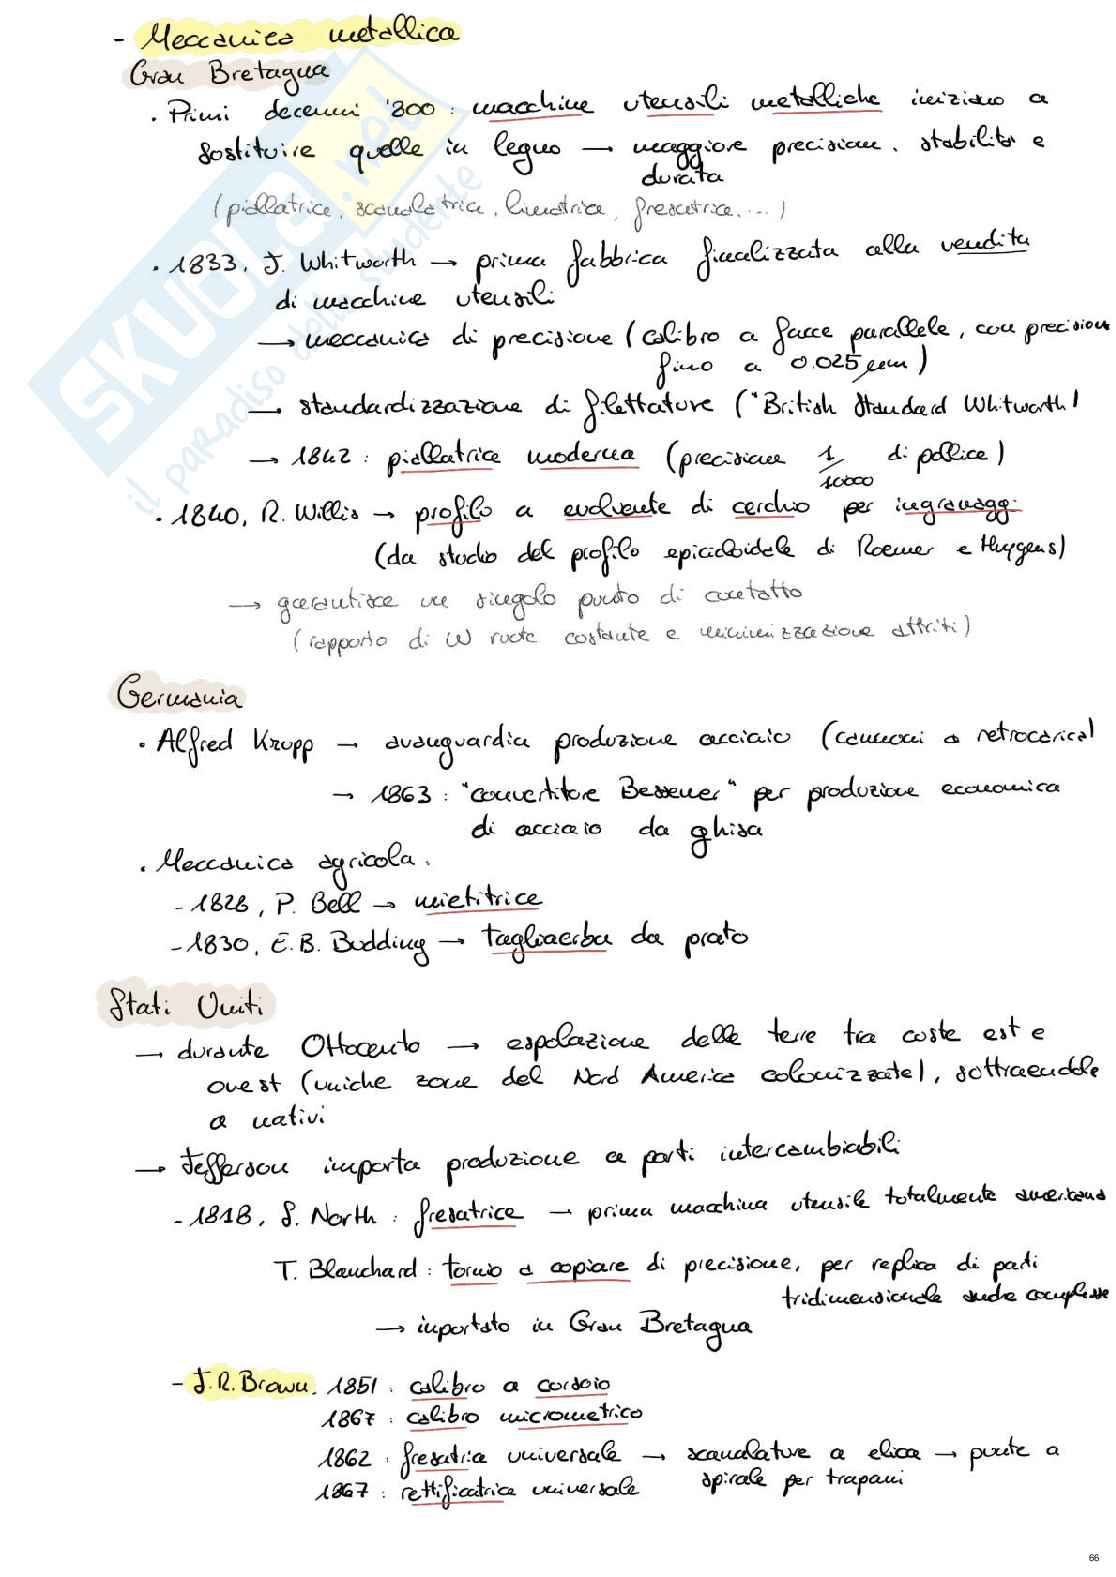 - Meccanica metallica
Gran Bretagna
• Primi decenni '800: macchine utensili metalliche iniziano a
sostituire quelle in legno → maggiore precisione, stabilità e
durata
(piallatrice, scanalatrice, limatrice, fresatrice, ...)
• 1833, J. Whitworth → prima fabbrica finalizzata alla vendita
di macchine utensili
→ meccanica di precisione (calibro a facce parallele, con precisione
fino a 0.025 μm)
→ standardizzazione di filettature ("British Standard Whitworth)
→ 1842: piallatrice moderna (precisione 1/10000 di pollice)
• 1840, R. Willis → profilo a evolvente di cerchio per ingranaggi
(da studio del profilo epicicloidale di Roemer e Huygens)
→ garantisce un singolo punto di contatto
(rapporto di W ruote costante e minimizzazione attriti)
Germania
• Alfred Krupp → avanguardia produzione acciaio (cannoni a retrocarica)
→ 1863: "convertitore Bessemer" per produzione economica
di acciaio da ghisa
• Meccanica agricola.
- 1828, P. Bell → mietitrice
- 1830, E.B. Budding → tagliaerba da prato
Stati Uniti
→ durante Ottocento → espolazione delle terre tra coste est e
ovest (uniche zone del Nord America colonizzate), sottraendole
a nativi
→ Jefferson importa produzione a parti intercambiabili
- 1818, S. North: fresatrice → prima macchina utensile totalmente americana
T. Blanchard: tornio a copiare di precisione, per replica di parti
tridimensionale anche complesse
→ importato in Gran Bretagna
- J.R. Brown. 1851: calibro a corsoio
1867: calibro micrometrico
1862: fresatrice universale → scanalature a elica → punte a
spirale per trapani
1867: rettificatrice universale
SKUOLA.net
il paradiso dello studente
66